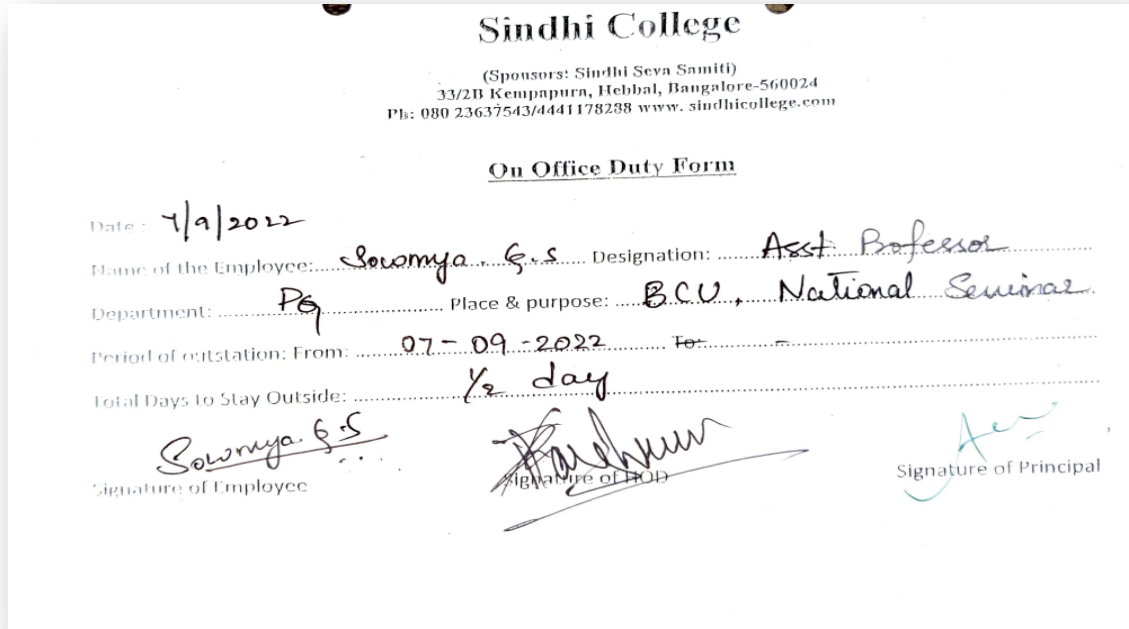 Sindhi College
(Sponsors: Sindhi Seva Samiti)
33/2B Kempapura, Hebbal, Bangalore-560024
Ph: 080 23637543/4441178288 www. sindhicollege.com
On Office Duty Form
Date : 7/9/2022
Name of the Employee: Sowmya. G.S Designation: Asst Professor
Department: PG Place & purpose: BCU, National Seminar
Period of outstation: From: 07-09-2022 To: -
Total Days to Stay Outside: 1/2 day
Sowmya G.S
Signature of Employee Signature of HOD Signature of Principal